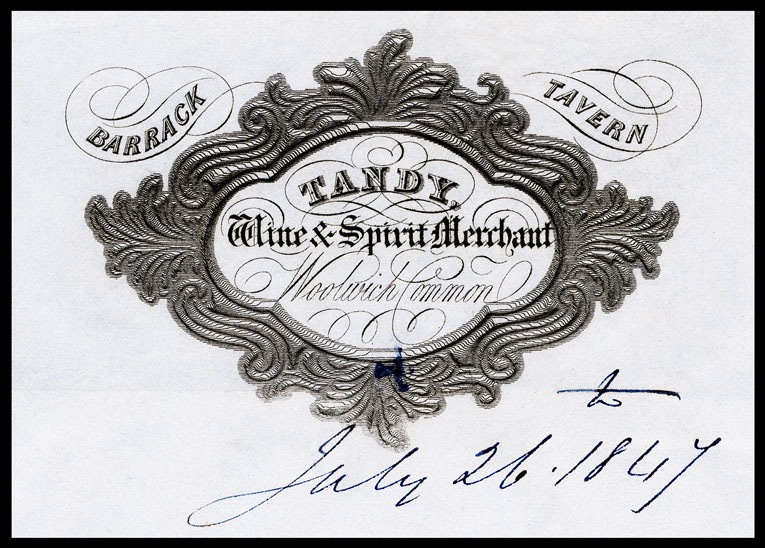 BARRACK TAVERN
TANDY,
Wine & Spirit Merchant
Woolwich Common
to
July 26. 1847